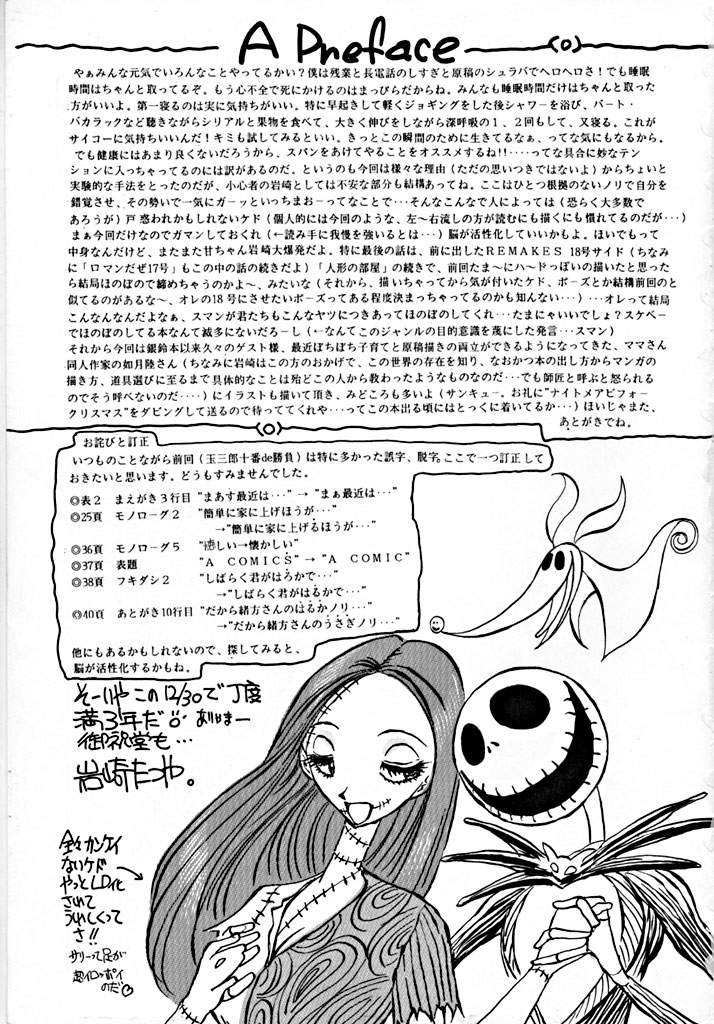 A Preface
(O)
やぁみんな元気でいろんなことやってるかい？僕は残業と長電話のしすぎと原稿のシュラバでヘロヘロさ！でも睡眠
時間はちゃんと取ってるぞ。もう心不全で死にかけるのはまっぴらだからね。みんなも睡眠時間だけはちゃんと取った
方がいいよ。第一寝るのは実に気持ちがいい。特に早起きして軽くジョギングをした後シャワーを浴び、バート・
バカラックなど聴きながらシリアルと果物を食べて、大きく伸びをしながら深呼吸の１、２回もして、又寝る。これが
サイコーに気持ちいいんだ！キミも試してみるといい。きっとこの瞬間のために生きてるなぁ、ってな気にもなるから。
でも健康にはあまり良くないだろうから、スパンをあけてやることをオススメするね!!‥‥ってな具合に妙なテン
ションに入っちゃってるのには訳があるのだ。というのも今回は様々な理由（ただの思いつきではないよ）からちょいと
実験的な手法をとったのだが、小心者の岩崎としては不安な部分も結構あってね。ここはひとつ根拠のないノリで自分を
錯覚させ、その勢いで一気にガーッといっちまおーってなことで‥‥そんなこんなで人によっては（恐らく大多数で
あろうが）戸惑われかもしれないケド（個人的には今回のような、左～右流しの方が読むにも描くにも慣れてるのだが‥‥）
まぁ今回だけなのでガマンしておくれ（←読み手に我慢を強いるとは‥‥）脳が活性化していいかもよ。ほいでもって
中身なんだけど、またまた甘ちゃん岩崎大爆発だよ。特に最後の話は、前に出したＲＥＭＡＫＥＳ 18号サイド（ちなみ
に「ロマンだぜ17号」もこの中の話の続きだよ）「人形の部屋」の続きで、前回たま～にハ～ドっぽいの描いたと思った
ら結局ほのぼので締めちゃうのかよ～、みたいな（それから、描いちゃってから気が付いたケド、ポーズとか結構前回のと
似てるのがあるな～、オレの18号にさせたいポーズってある程度決まっちゃってるのかも知んない‥‥）‥‥オレって結局
こんなんなんだよなぁ、スマンが君たちもこんなヤツにつきあってほのぼのしてくれ‥‥たまにゃいいでしょ？スケベー
でほのぼのしてる本なんて滅多にないだろーし（←なんてこのジャンルの目的意識を蔑にした発言‥‥スマン）
それから今回は銀鈴本以来久々のゲスト様、最近ぼちぼち子育てと原稿描きの両立ができるようになってきた、ママさん
同人作家の如月陸さん（ちなみに岩崎はこの方のおかげで、この世界の存在を知り、なおかつ本の出し方からマンガの
描き方、道具選びに至るまで具体的なことは殆どこの人から教わったようなものなのだ‥‥でも師匠と呼ぶと怒られる
のでそう呼べないのだ‥‥‥）にイラストも描いて頂き、みどころも多いよ（サンキュー。お礼に“ナイトメアビフォー
クリスマス”をダビングして送るので待っててくれや‥‥ってこの本出る頃にはとっくに着いてるか‥‥）ほいじゃまた、
あとがきでね。
(O)
お詫びと訂正
いつものことながら前回（玉三郎十番de勝負）は特に多かった誤字、脱字。ここで一つ訂正して
おきたいと思います。どうもすみませんでした。
◎表２　まえがき３行目 “まあす最近は‥‥” → “まぁ最近は‥‥”
◎25頁　モノローグ２　“簡単に家に上げほうが‥‥”
→“簡単に家に上げるほうが‥‥”
◎36頁　モノローグ５　しい→懐かしい”
◎37頁　表題　“Ａ ＣＯＭＩＣＳ” → “Ａ ＣＯＭＩＣ”
◎38頁　フキダシ２　“しばらく君がはろかで‥‥”
→“しばらく君がはるかで‥‥”
◎40頁　あとがき10行目 “だから緒方さんのはるかノリ‥‥”
→“だから緒方さんのうさぎノリ‥‥”
他にもあるかもしれないので、探してみると、
脳が活性化するかもね。
そーいや この12/30で丁度
満3年だ。ありはまー
御祝堂も…
岩崎たつや。
全々カンケイ
ないケド
やっとLD化
されて
うれしくって
さ!!
サリーって足が
超イロッポイ
のだ♡